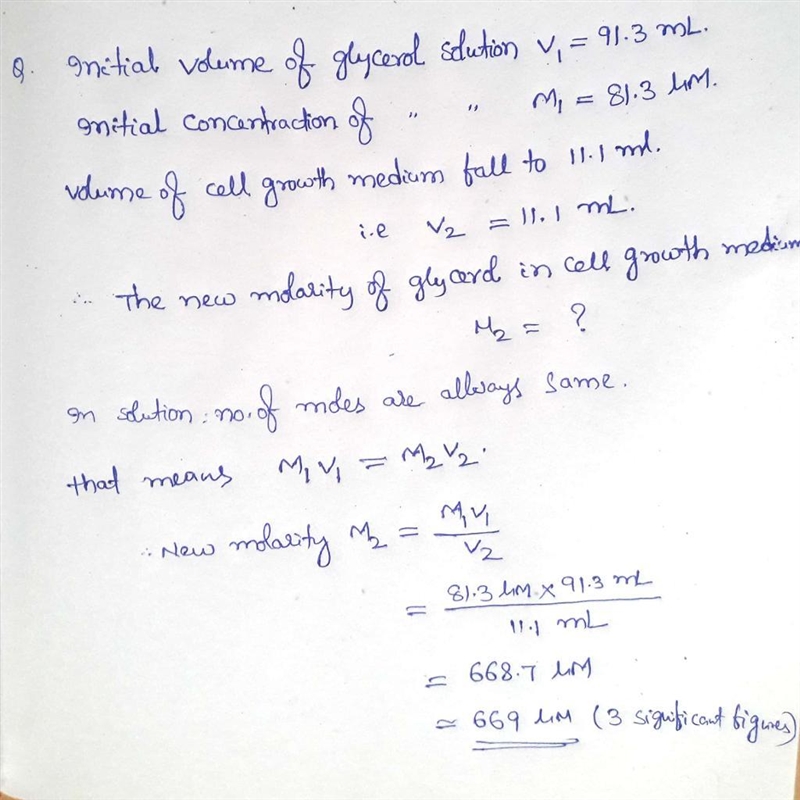 Q. Initial volume of glycerol solution V₁ = 91.3 mL.
Initial concentration of " " M₁ = 81.3 μM.
volume of cell growth medium fall to 11.1 ml.
i.e V₂ = 11.1 mL.
∴ The new molarity of glycerol in cell growth medium
M₂ = ?
In solution : no. of moles are allways same.
that means M₁V₁ = M₂V₂.
∴ New molarity M₂ = M₁V₁ / V₂
= 81.3 μM × 91.3 mL / 11.1 mL
= 668.7 μM
≃ 669 μM (3 significant figures)